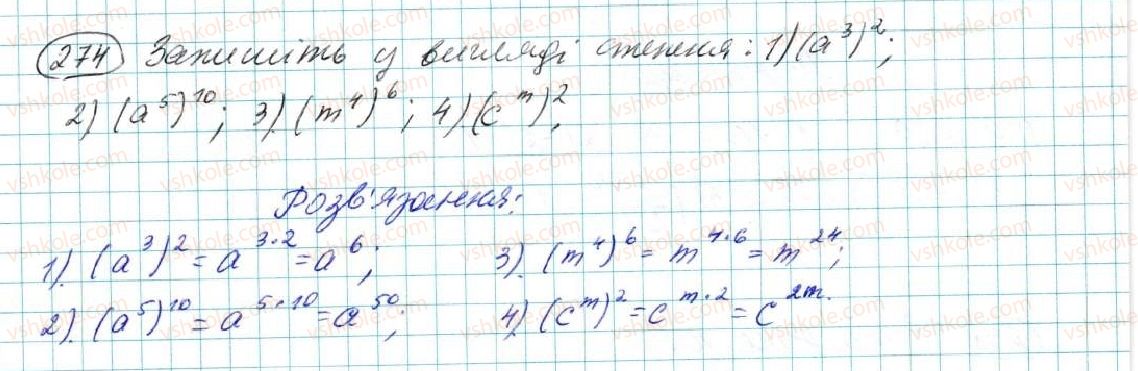 274 Запишіть у вигляді степеня: 1) (a³)²;
2) (a⁵)¹⁰; 3) (m⁴)⁶; 4) (cᵐ)².
Розв'язання:
1). (a³)² = a³·² = a⁶;
2). (a⁵)¹⁰ = a⁵·¹⁰ = a⁵⁰;
3). (m⁴)⁶ = m⁴·⁶ = m²⁴;
4). (cᵐ)² = cᵐ·² = c²ᵐ.
vshkole.com